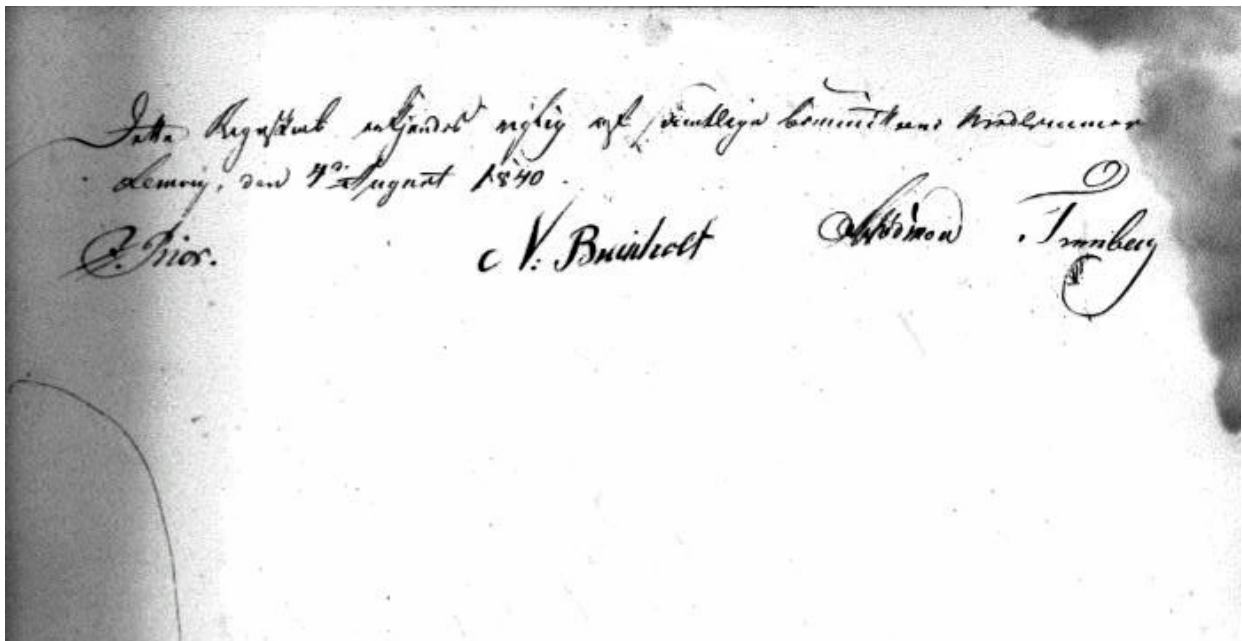 Dette Regnskab erkjendes rigtig af samtlige Committeens Medlemmer
Lemvig, den 4de August 1840.
Prior. N. Breinholt Trenberg